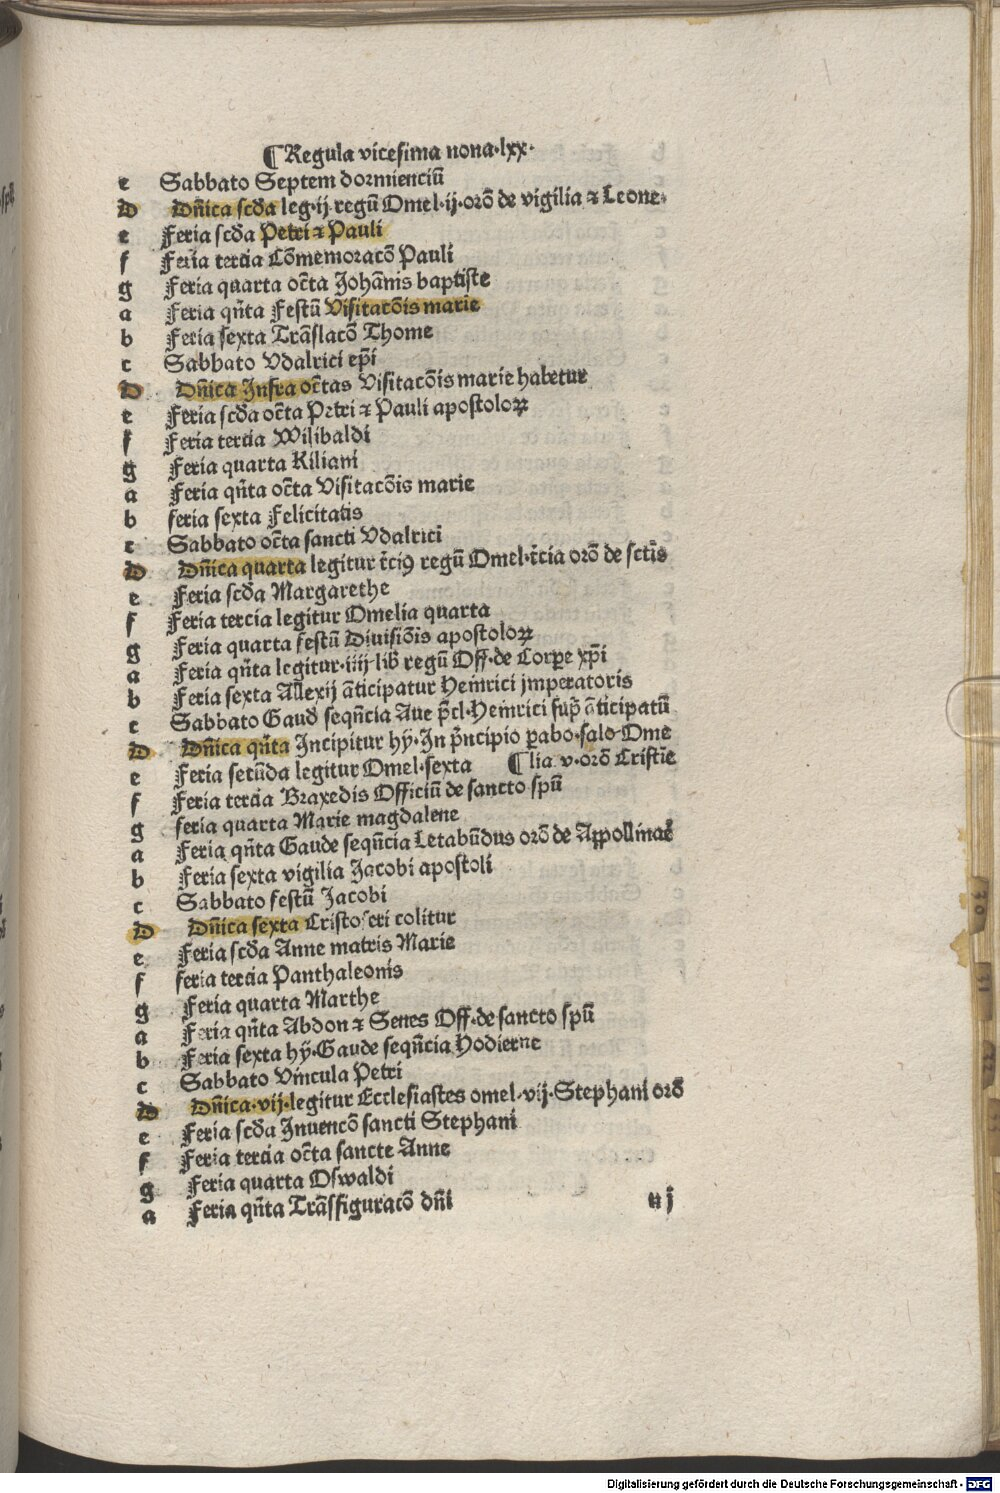 ¶Regula vicesima nona·lxx·
c Sabbato Septem dormienciū
D Dñica scďa leg·ij·regū Omel·ij·orō de vigilia ⁊ Leone·
e Feria scďa Petri ⁊ Pauli
f Feria tercia Cōmemoracō Pauli
g Feria quarta oc̄ta Johānis baptiste
a Feria qn̄ta Festū Visitacōis marie
b Feria sexta Trāslacō Thome
c Sabbato Vdalrici ep̄i
D Dñica Infra oc̄tas Visitacōis marie habetur
e Feria scďa oc̄ta Petri ⁊ Pauli apostoloꝝ
f Feria tercia Wilibaldi
g Feria quarta Kiliani
a Feria qn̄ta oc̄ta Visitacōis marie
b feria sexta Felicitatis
c Sabbato oc̄ta sancti Vdalrici
D Dñica quarta legitur t̄ciꝰ regū Omel·t̄cia orō de sctīs
e Feria scďa Margarethe
f Feria tercia legitur Omelia quarta
g Feria quarta festū Diuisiōis apostoloꝝ
a Feria qn̄ta legitur·iiij·lib̄ regū Off·de Corꝑe xp̄i
b Feria sexta Allexij āticipatur Heinrici jmperatoris
c Sabbato Gaud̄ seqn̄cia Aue p̄cl·Heinrici sup̄ āticipatū
D Dñica qn̄ta Incipitur hȳ·In p̄ncipio ꝑabo·salo·Ome
e Feria secūda legitur Omel·sexta ¶lia·v·orō Cristīe
f Feria tercia Braxedis Officiū de sancto spū
g feria quarta Marie magdalene
a Feria qn̄ta Gaude seqn̄cia Letabūdus orō de Appollinaē
b Feria sexta vigilia Jacobi apostoli
c Sabbato festū Jacobi
D Dñica sexta Cristoferi colitur
e Feria scďa Anne matris Marie
f feria tercia Panthaleonis
g Feria quarta Marthe
a Feria qn̄ta Abdon ⁊ Senes Off·de sancto spū
b Feria sexta hȳ·Gaude seqn̄cia Hodierne
c Sabbato Vincula Petri
D Dñica·vij·legitur Ecclesiastes omel·vij·Stephani orō
e Feria scďa Inuencō sancti Stephani
f Feria tercia oc̄ta sancte Anne
g Feria quarta Oswaldi
a Feria qn̄ta Trāsfiguracō dn̄i
Digitalisierung gefördert durch die Deutsche Forschungsgemeinschaft - DFG